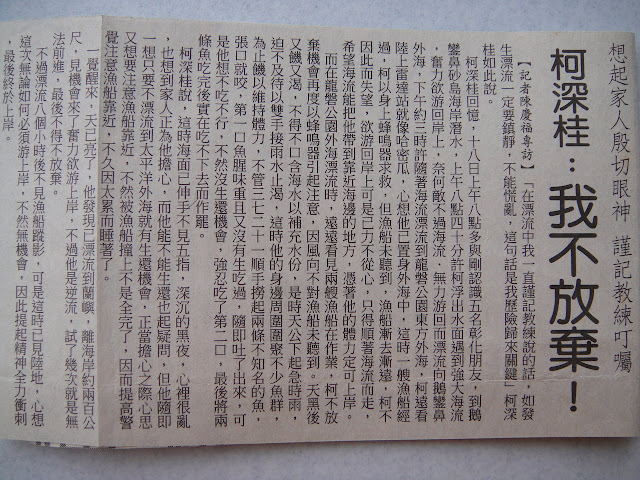 想起家人殷切眼神 謹記教練叮嚀
柯深桂：我不放棄！
【記者陳慶福專訪】「在漂流中我一直謹記教練說的話，如發
生漂流一定要鎮靜，不能慌亂，這句話是我歷險歸來關鍵」柯深
桂如此說。
柯深桂回憶，十八日上午八點多與剛認識五名彰化朋友，到鵝
鑾鼻砂島海岸潛水，上午八點四十分許柯浮出水面遇到強大海流
，奮力欲游回岸上，奈何敵不過海流，無力游回而漂流向鵝鑾鼻
外海，下午約三時許隨著海流漂流到龍磐公園東方外海，柯遠看
陸上雷達站就像哈密瓜，心想他已置身外海中，這時一艘漁船經
過，柯以身上蜂鳴器求救，但漁船未聽到，漁船漸去漸遠，柯不
因此而失望，欲游回岸上可是已力不從心，只得順著海流而走，
希望海流能把他帶到靠近海邊的地方，憑著他的體力定可上岸。
而在龍磐公園外海漂流時，遠遠看見兩艘漁船在作業，柯不放
棄機會再度以蜂鳴器引起注意，因風向不對漁船未聽到。天黑後
又饑又渴，不得不口含海水以補充水份，是時天公下起急時雨，
迫不及待以雙手接雨水止渴，這時他的身邊周圍圍聚不少魚群，
為止饑以維持體力，不管三七二十一順手撈起兩條不知名的魚，
張口就咬，第一口魚腥味重且又沒有生吃過，隨即吐了出來，可
是他想不吃不行，不然沒生還機會，強忍吃了第二口，最後將兩
條魚吃完後實在吃不下去而作罷。
柯深桂說，這時海面已伸手不見五指，深沉的黑夜，心裡很亂
，也想到家人正為他擔心，而他能不能生還也起疑問，但他隨即
一想只要不漂流到太平洋外海就有生還機會，正當擔心之際心思
又想要注意漁船靠近，不然被漁船撞上不是全完了，因而提高警
覺注意漁船靠近，不久因太累而睡著了。
一覺醒來，天已亮了，他發現已漂流到蘭嶼，離海岸約兩百公
尺，見機會來了奮力欲游上岸，不過他是逆流，試了幾次就是無
法前進，最後不得不放棄。
不過漂流八個小時後不見漁船蹤影，可是這時已見陸地，心想
這次無論如何必須游上岸，不然無機會，因此提起精神全力衝刺
，最後終於上岸。